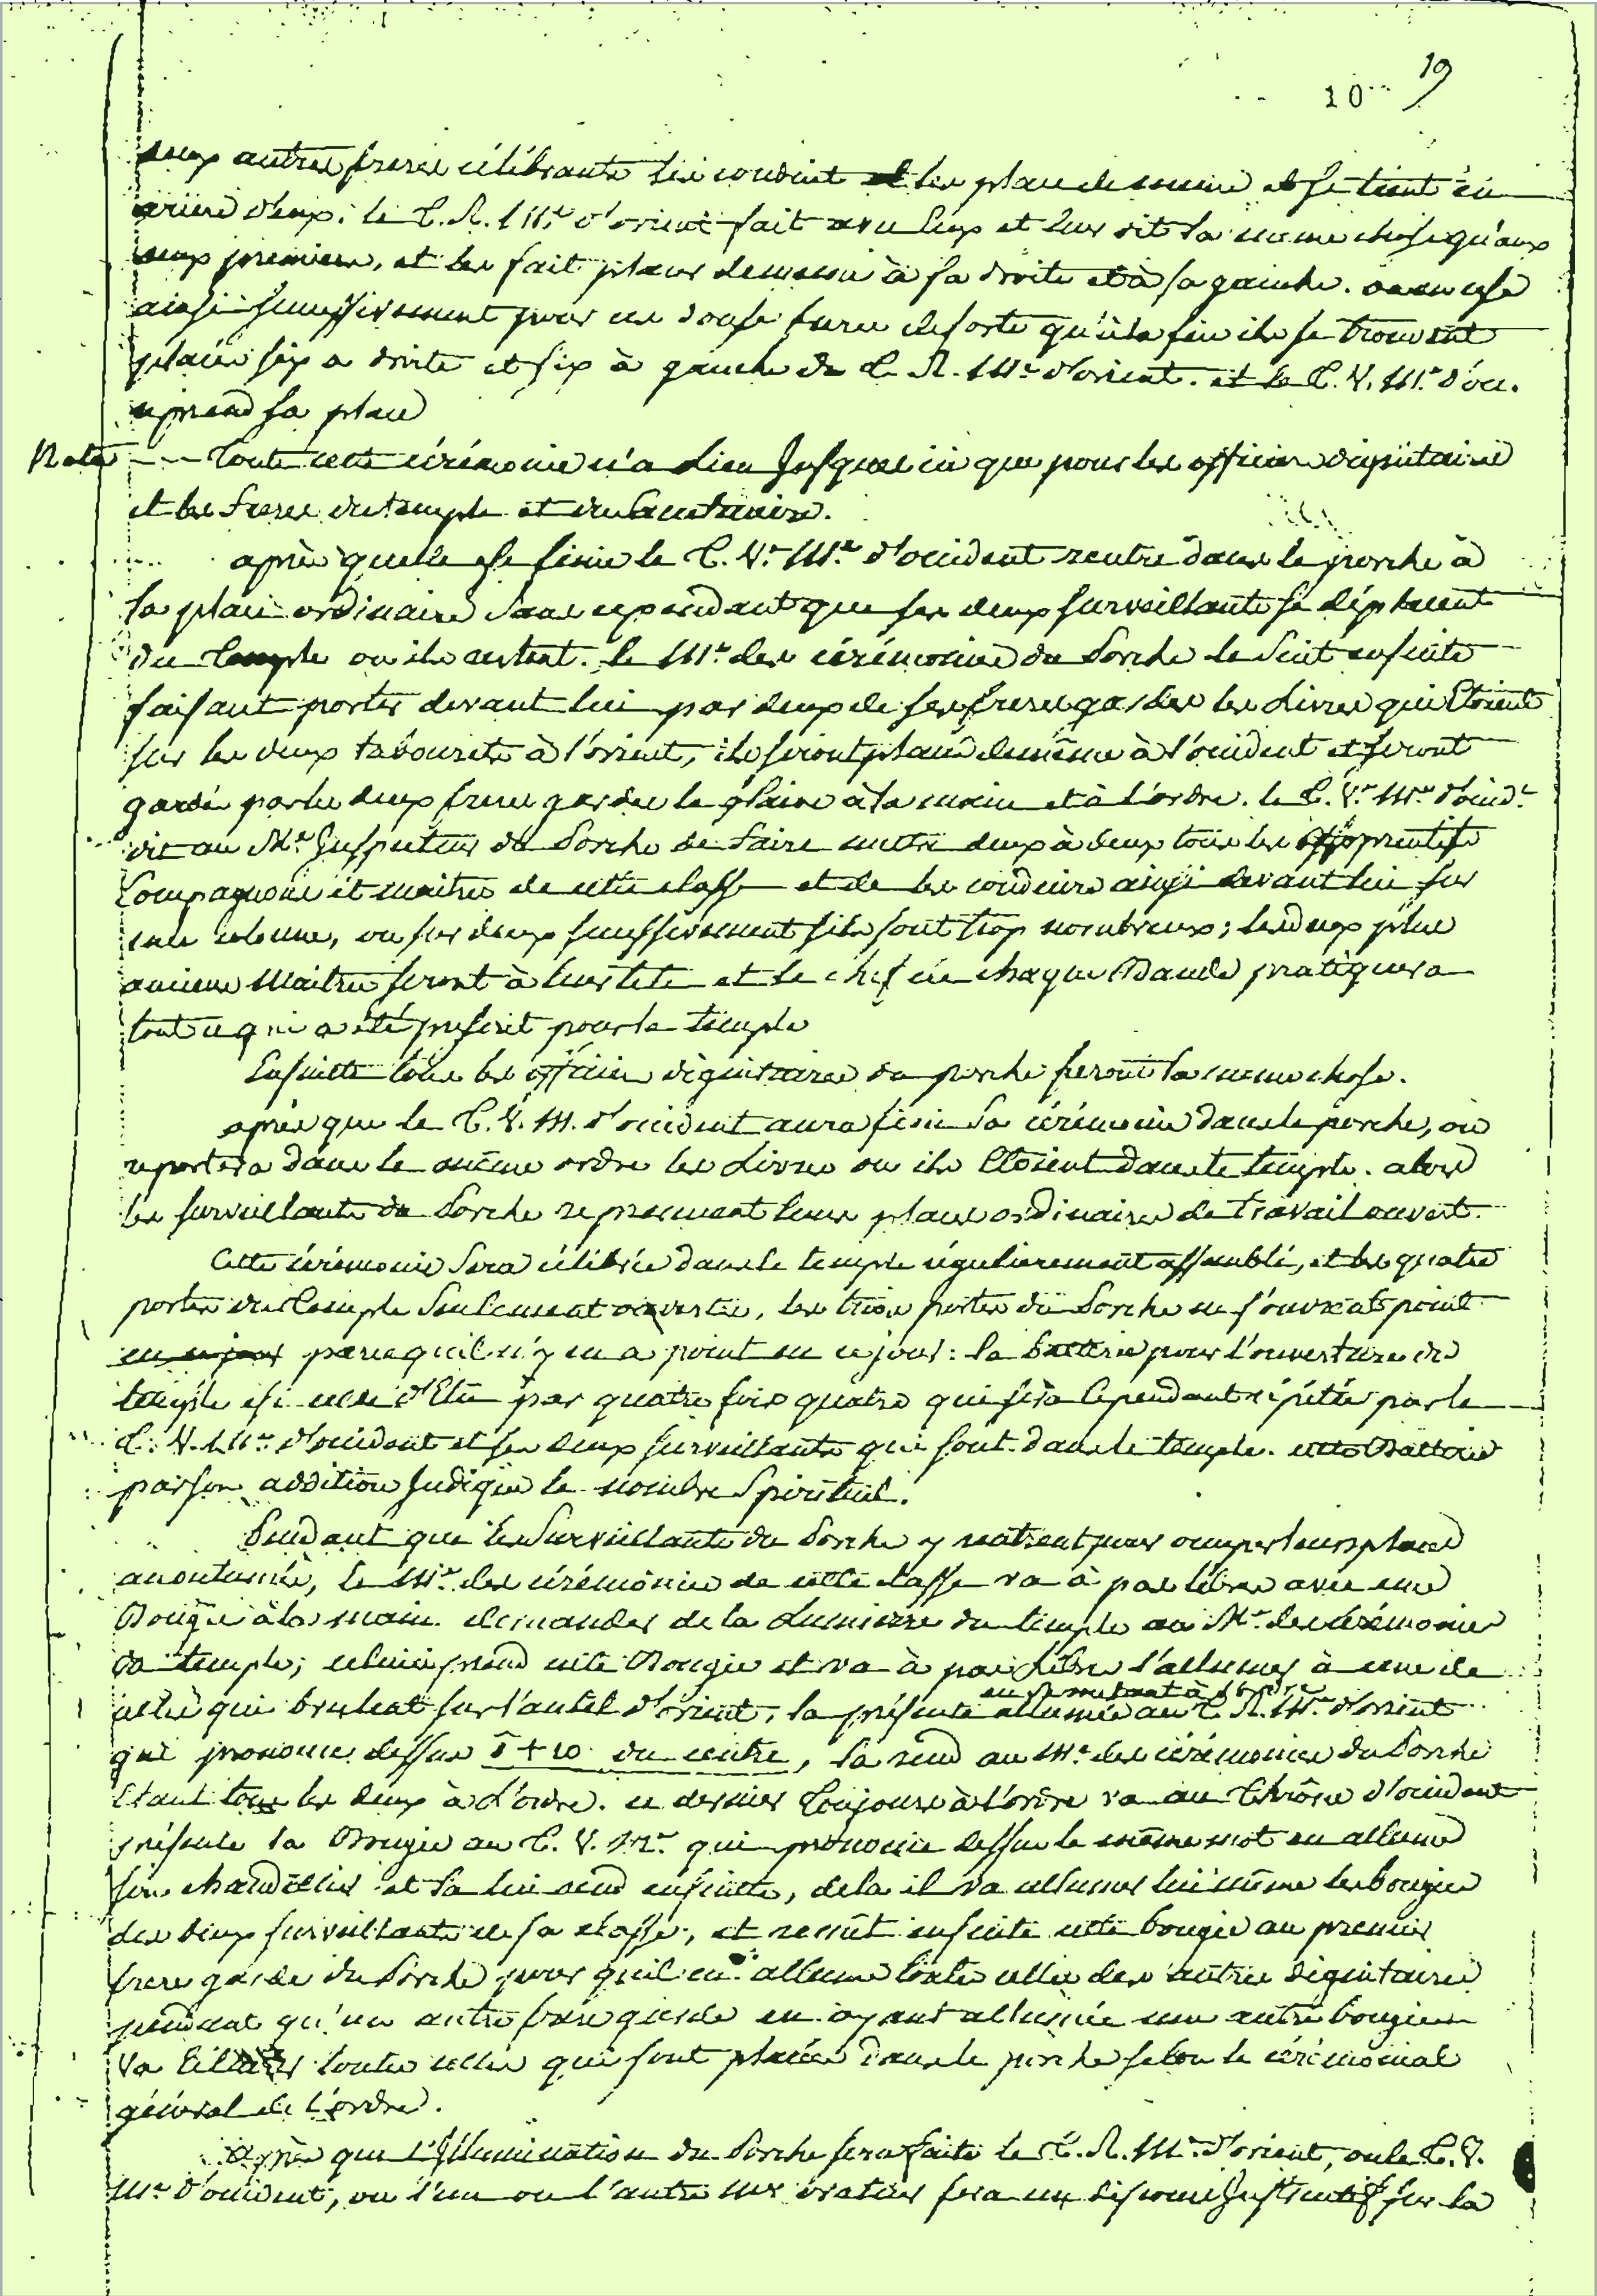 10 19
deux autres freres célébrants les conduit et les place de meme et se tient en
arriere d'eux: le T. R. M.e d'orient fait avec eux et leur dit la meme chose qu'aux
deux premiers, et les fait placer de meme à sa droite et à sa gauche. on en use
ainsi successivement pour ces douze freres de sorte qu'à la fin ils se trouvent
placés six a droite et six à gauche du T. R. M.e d'orient. et le T. V. M.e d'occ.
reprend sa place
Nota - - Toute cette cérémonie n'a lieu jusques ici que pour les officiers dignitaires
et les freres du temple et du Sanctuaire.
après quelle est finie le T. V. M.e d'occident rentre dans le porche à
sa place ordinaire sans cependant que ses deux surveillants se déplacent
du Temple ou ils restent. le M.e des cérémonies du Porche le suit ensuite
faisant porter devant lui par deux de ses freres gardes les Livres qui Etoient
sur les deux tabourets à l'orient, ils seront placés de même à l'occident et seront
gardés par les deux freres gardes le glaive à la main et à l'ordre. le T. V. M.e d'occid.t
dit au M.e Inspecteur du Porche de faire mettre deux à deux tous les apprentifs
Compagnons et maitres de cette classe et de les conduire ainsi devant lui sur
une colonne, ou sur deux successivement s'ils sont trop nombreux; les deux plus
anciens Maitres seront à leur tete et le chef de chaque Bande pratiquera
tout ce qui a été prescrit pour le temple
Ensuitte tous les officiers dignitaires du porche feront la meme chose.
après que le T. V. M. d'occident aura fini sa cérémonie dans le porche, on
reportera dans le même ordre les Livres ou ils Etoient dans le temple. alors
les surveillants du Porche reprennent leurs places ordinaires de travail ouvert.
Cette cérémonie sera célébrée dans le temple régulierement assemblé, et les quatre
portes du Temple seulement ouvertes, les trois portes du Porche ne s'ouvrent point
en ce jour parcequ'il n'y en a point en ce jour: la batterie pour l'ouverture du
temple est celle d'Elu par quatre fois quatre qui sera cependant répétée par le
T. V. M.e d'occident et ses deux surveillants qui sont dans le temple. cette Batterie
par son addition Indique le nombre Spirituel.
Pendant que les Surveillants du Porche y rentrent pour occuper leurs places
accoutumées, le M.e des cérémonies de cette classe va à pas libres avec une
Bougie à la main demander de la Lumierre du temple au M.e des cérémonies
du temple; celui-ci prend cette Bougie et va à pas libres l'allumer à une de
celles qui brulent sur l'autel d'orient, la présente allumée au T. R. M.e d'orient
en se mettant à l'ordre
qui prononce dessus 5 + 10 du centre, la rend au M.e des cérémonies du Porche
Etant tous les deux à l'ordre. ce dernier Toujours à l'ordre va au Thrône d'occident
présente la Bougie au T. V. M.e qui prononce dessus le même mot en allume
son chandellier et la lui rend ensuitte, de la il va allumer lui même les bougies
des deux surveillants de sa classe, et remet ensuite cette bougie au premier
frere garde du Porche pour qu'il en allume toutes celles des autres dignitaires
pendant qu'un autre frere garde en ayant allumée une autre bougie
va toutes celles qui sont placées dans le porche selon le cérémonial
général de l'ordre.
Après que l'Illumination du Porche sera faite le T. R. M.e d'orient, ou le T. V.
M.e d'occident, ou l'un ou l'autre orateur fera un discours Instructif sur la